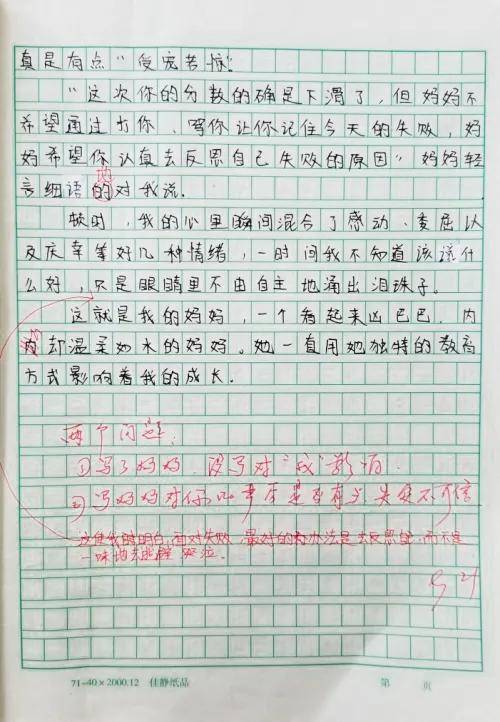 真是有点"受宠若惊"
"这次你的分数的确是下滑了，但妈妈不
希望通过打你、骂你让你记住今天的失败，妈
妈希望你认真去反思自己失败的原因"妈妈轻
言细语的对我说.
地
顿时，我的心里瞬间混合了感动、委屈以
及庆幸等好几种情绪，一时间我不知道该说什
么好，只是眼睛里不由自主地涌出泪珠子.
这就是我的妈妈，一个看起来凶巴巴.内
却温柔如水的妈妈.她一直用她独特的教育
方式影响着我的成长.
两个问题：
①写了妈妈，没写对"我"影响.
②写妈妈对你的事而是否有点失实不可信
这使我明白，面对失败，最好的办法是去反思，而不是
一味地去逃避 哭泣.
71-40×2000.12 佳静纸品
第 页